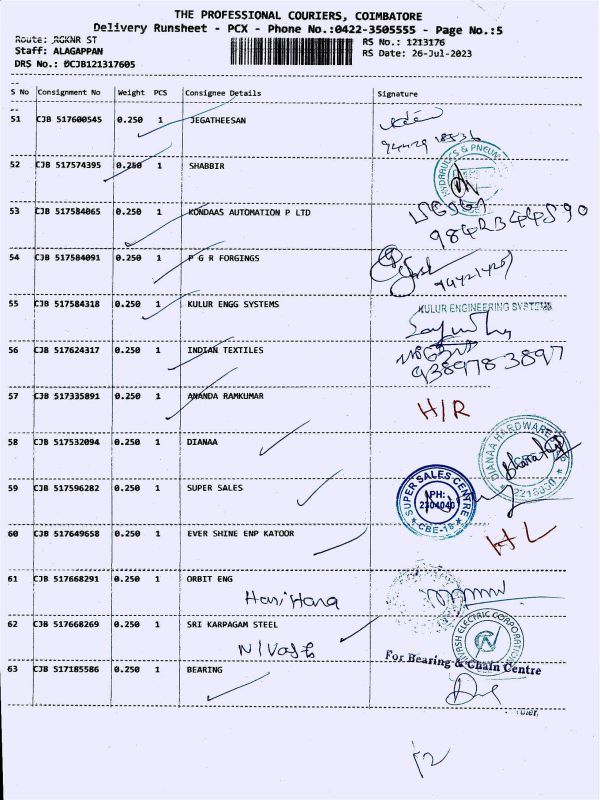 THE PROFESSIONAL COURIERS, COIMBATORE
Delivery Runsheet - PCX - Phone No.:0422-3505555 - Page No.:5
Route: RGKNR ST
RS No.: 1213176
Staff: ALAGAPPAN
RS Date: 26-Jul-2023
DRS No.: DCJB121317605
S No Consignment No Weight PCS Consignee Details Signature
51 CJB 517600545 0.250 1 JEGATHEESAN
52 CJB 517574395 0.250 1 SHABBIR
HYDRAULICS & PNEUM
53 CJB 517584065 0.250 1 KONDAAS AUTOMATION P LTD
54 CJB 517584091 0.250 1 P G R FORGINGS
55 CJB 517584318 0.250 1 KULUR ENGG SYSTEMS
KULUR ENGINEERING SYSTEMS
56 CJB 517624317 0.250 1 INDIAN TEXTILES
9389783897
57 CJB 517335891 0.250 1 ANANDA RAMKUMAR
H/R
58 CJB 517532094 0.250 1 DIANAA
DIANAA HARDWARE
59 CJB 517596282 0.250 1 SUPER SALES
SUPER SALES CENTRE
PH:
2304040
CBE-18
60 CJB 517649658 0.250 1 EVER SHINE ENP KATOOR
HL
61 CJB 517668291 0.250 1 ORBIT ENG
62 CJB 517668269 0.250 1 SRI KARPAGAM STEEL
ELECTRIC CORPORATION
For Bearing & Chain Centre
63 CJB 517185586 0.250 1 BEARING
12